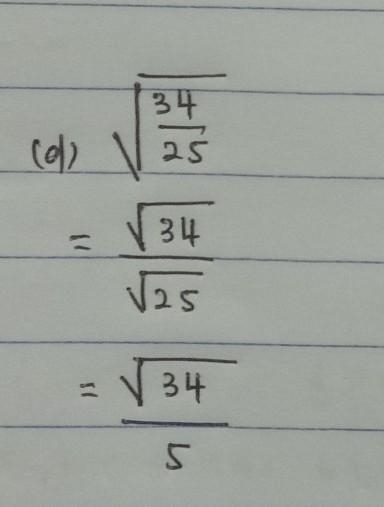 (d) √(34/25)
= √34/√25
= √34/5